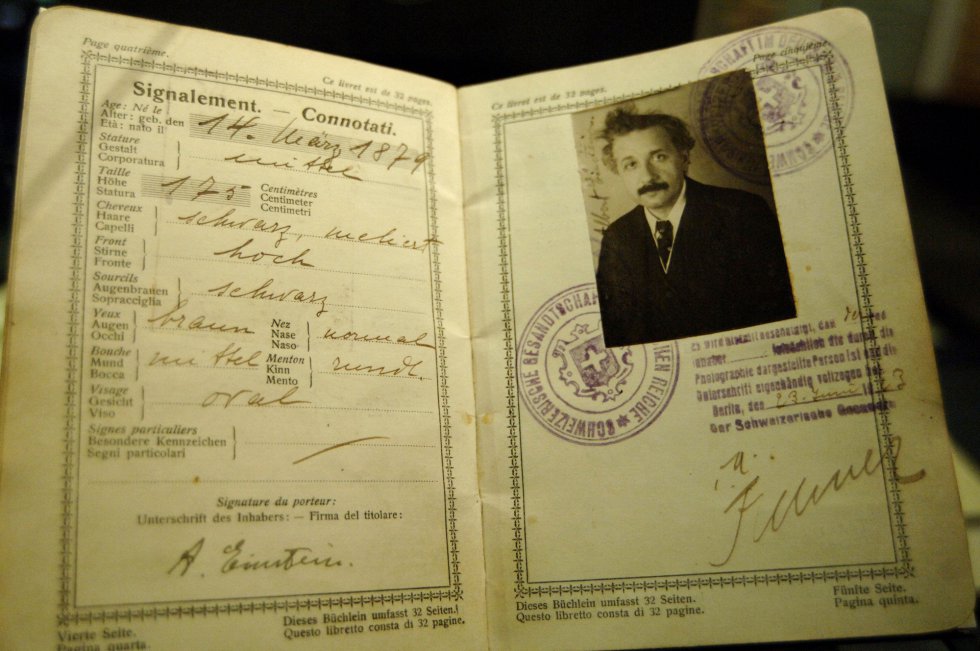 Page quatrième.
Ce livret est de 32 pages.
Signalement. — Connotati.
Age: Né le
Alter: geb. den
Età: nato il
14. März 1879
Stature
Gestalt
Corporatura
mittel
Taille
Höhe
Statura
175
Centimètres
Centimeter
Centimetri
Cheveux
Haare
Capelli
schwarz, meliert
Front
Stirne
Fronte
hoch
Sourcils
Augenbrauen
Sopracciglia
schwarz
Yeux
Augen
Occhi
braun
Nez
Nase
Naso
normal
Bouche
Mund
Bocca
mittel
Menton
Kinn
Mento
rundl.
Visage
Gesicht
Viso
oval
Signes particuliers
Besondere Kennzeichen
Segni particolari
Signature du porteur:
Unterschrift des Inhabers: — Firma del titolare:
A. Einstein.
Vierte Seite.
Pagina quarta.
Dieses Büchlein umfasst 32 Seiten.
Questo libretto consta di 32 pagine.
Page cinquième
Ce livret est de 32 pages.
SCHWEIZERISCHE GESANDTSCHAFT REICHE
die durch die
Photographie dargestellte Person ist und die
Unterschrift eigenhändig vollzogen
Berlin, den 23. Juni 1923
Der Schweizerische
Dieses Büchlein umfasst 32 Seiten.
Questo libretto consta di 32 pagine.
Fünfte Seite.
Pagina quinta.